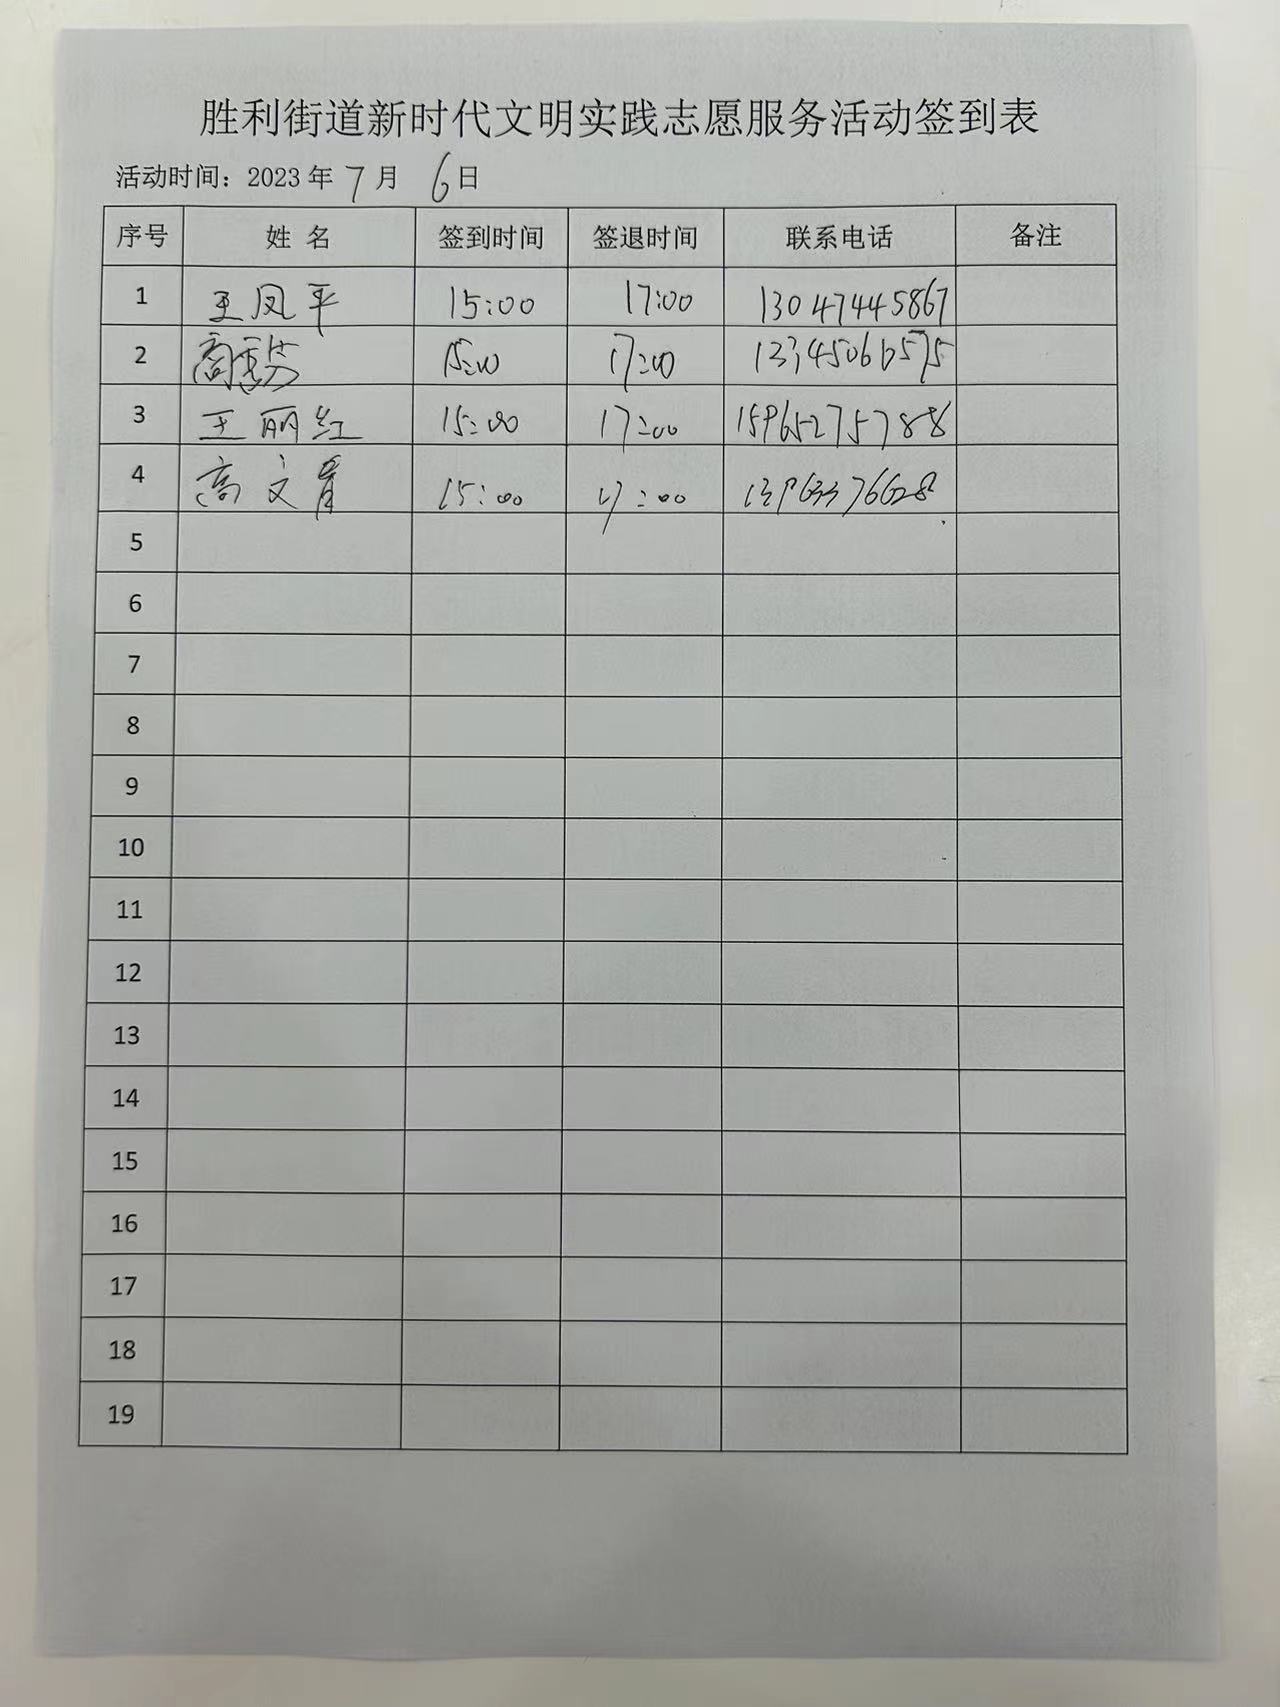 胜利街道新时代文明实践志愿服务活动签到表
活动时间：2023年 7月 6日
序号 姓 名 签到时间 签退时间 联系电话 备注
1 王凤平 15:00 17:00 13047445867
2 15:00 17:00
3 王丽红 15:00 17:00 15965275788
4 高文胥 15:00 17:00 13963376628
5
6
7
8
9
10
11
12
13
14
15
16
17
18
19